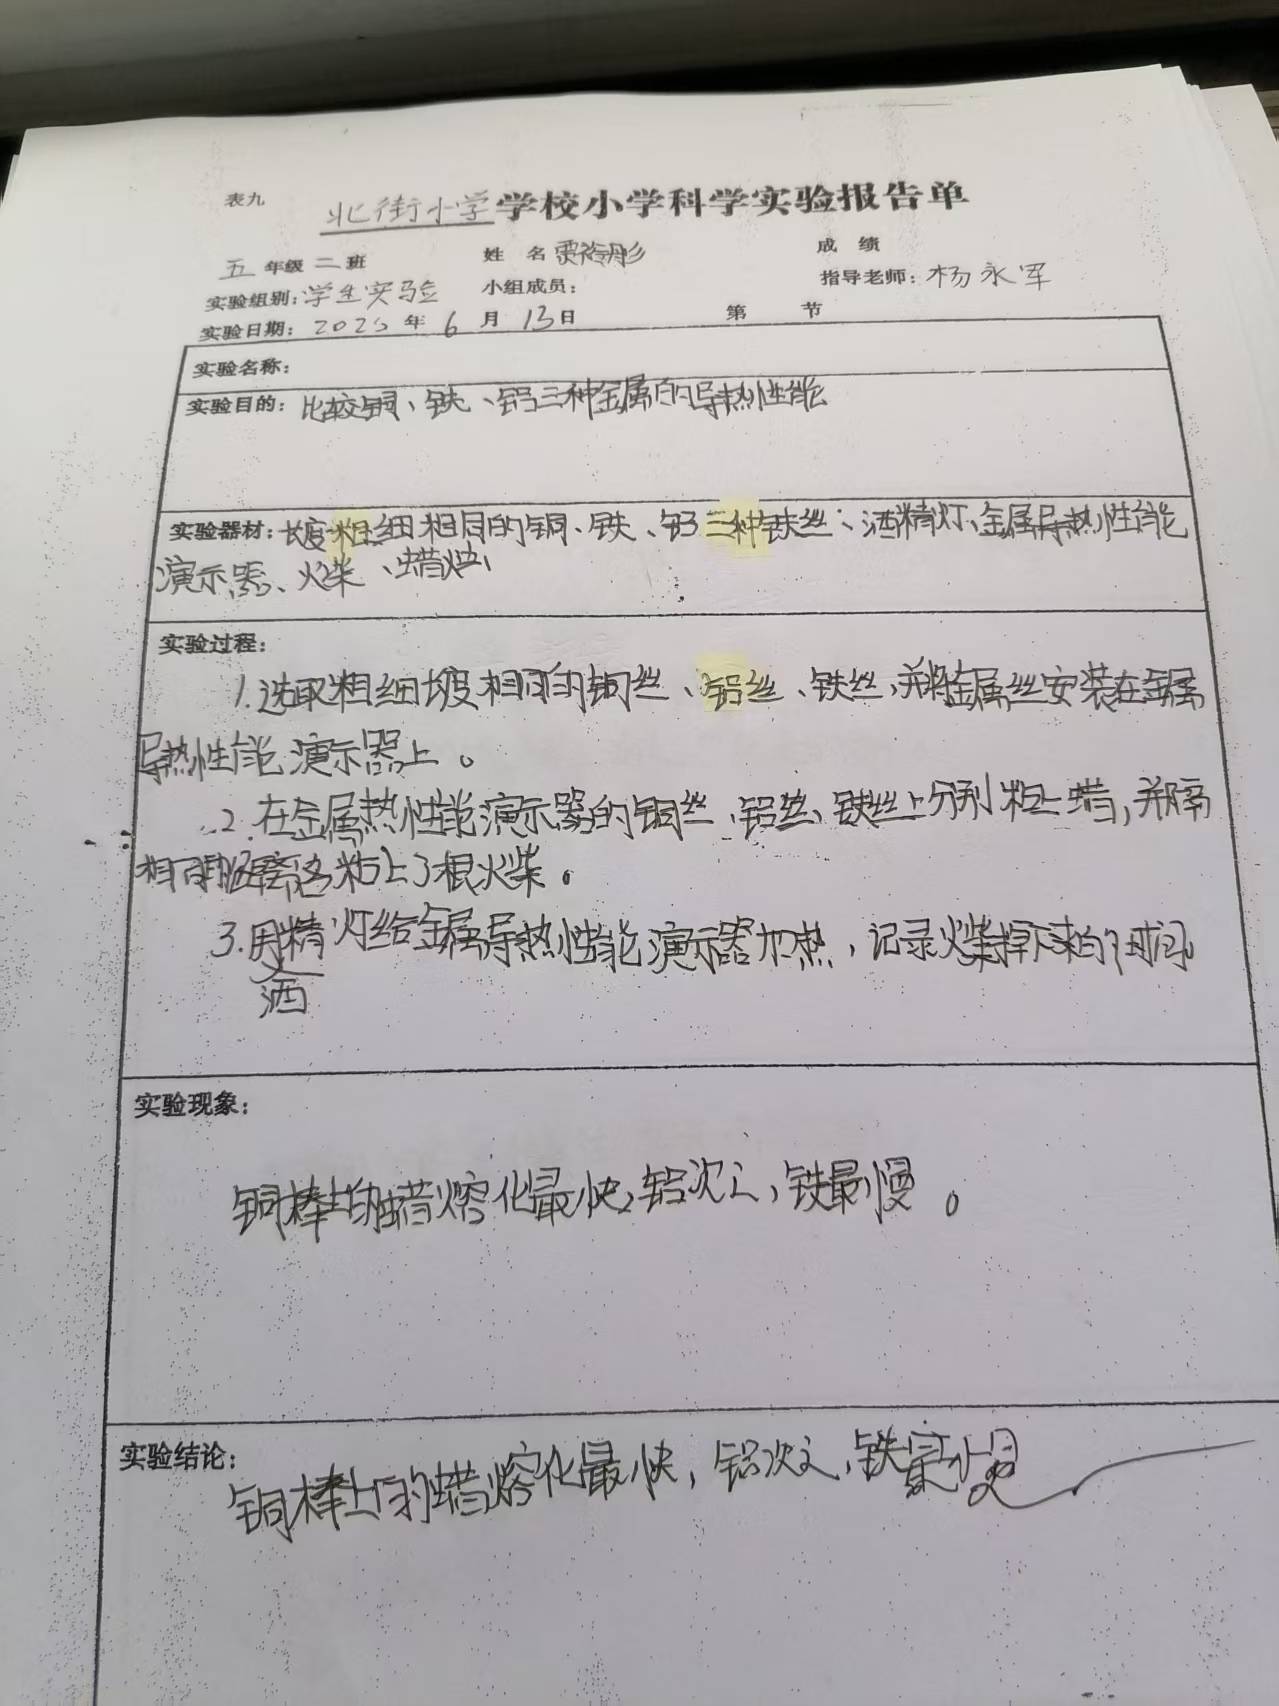 表九
北街小学学校小学科学实验报告单
五年级二班 姓 名 贾彤 成 绩
实验组别：学生实验 小组成员： 指导老师：杨永军
实验日期：2025年6月13日 第 节
实验名称：
实验目的：比较铜、铁、铝三种金属的导热性能
实验器材：长度粗细相同的铜、铁、铝三种铁丝、酒精灯、金属导热性能
演示器、火柴、蜡烛
实验过程：
1.选取粗细长度相同的铜丝、铝丝、铁丝，并将金属丝安装在金属
导热性能演示器上。
2.在金属热性能演示器的铜丝、铝丝、铁丝上分别粘上蜡，并隔
相同距离各粘上了根火柴。
3.用精灯给金属导热性能演示器加热，记录火柴掉下来的时间
酒
实验现象：
铜棒上的蜡熔化最快，铝次之，铁最慢。
实验结论：
铜棒上的蜡熔化最快，铝次之，铁最慢